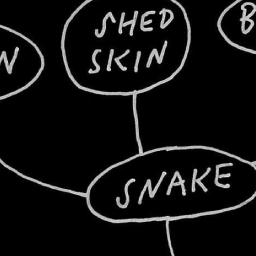 SHED
SKIN
SNAKE